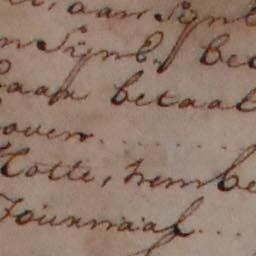 aan Sijnb
n Sijnb. bet
Caar betaal
oven
Hotte, trembe
Journaal